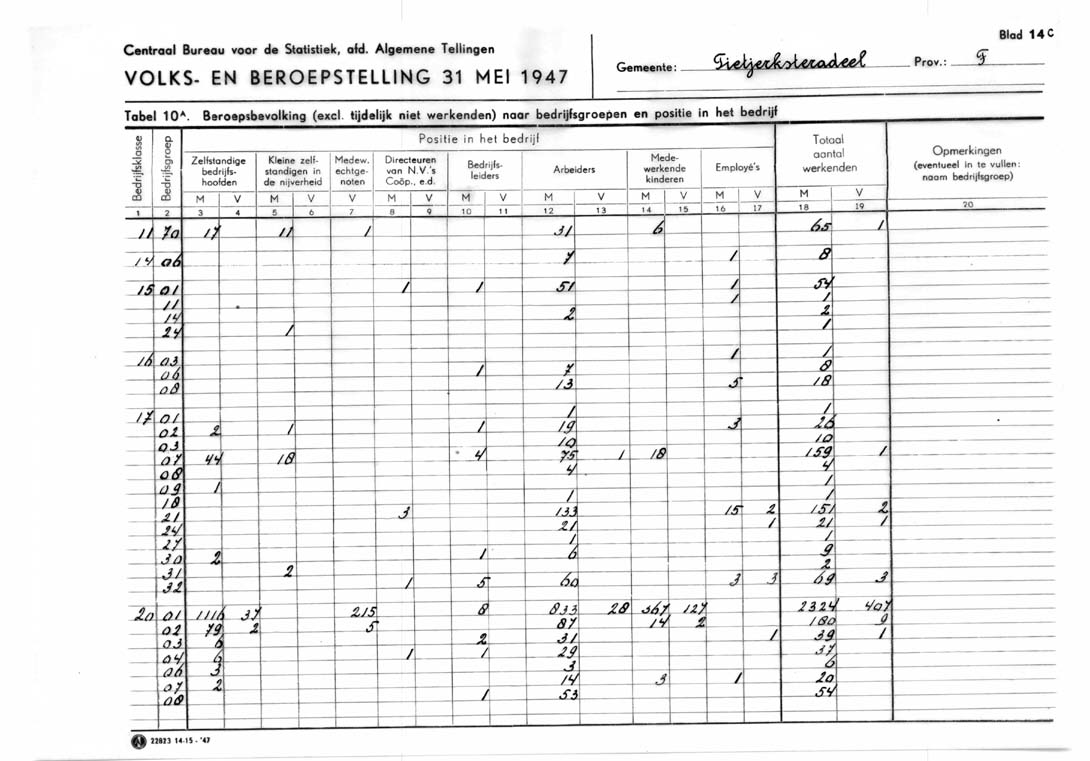 Blad 14 C
Centraal Bureau voor de Statistiek, afd. Algemene Tellingen
VOLKS- EN BEROEPSTELLING 31 MEI 1947
Gemeente: Tietjerksteradeel Prov.: F
Tabel 10A. Beroepsbevolking (excl. tijdelijk niet werkenden) naar bedrijfsgroepen en positie in het bedrijf
Bedrijfsklasse Bedrijfsgroep Positie in het bedrijf Totaal aantal werkenden Opmerkingen (eventueel in te vullen: naam bedrijfsgroep)
Zelfstandige bedrijfs-hoofden Kleine zelf-standigen in de nijverheid Medew. echtge-noten Directeuren van N.V.'s Coöp., e.d. Bedrijfs-leiders Arbeiders Mede-werkende kinderen Employé's
M V M V V M V M V M V M V M V M V
1 2 3 4 5 6 7 8 9 10 11 12 13 14 15 16 17 18 19 20
11 70 17 11 1 31 6 65 1
14 06 7 1 8
15 01 1 1 51 1 54
11 1 1
14 2 2
24 1 1
16 03 1 1
06 1 7 8
08 13 5 18
17 01 1 1
02 2 1 1 19 3 26
03 10 10
07 44 18 4 75 1 18 159 1
08 4 4
09 1 1
18 1 1
21 3 133 15 2 151 2
24 21 1 21 1
27 1 1
30 2 1 6 9
31 2 2
32 1 5 60 3 3 69 3
20 01 1116 37 215 8 833 28 367 127 2324 407
02 79 2 5 87 14 2 180 9
03 6 2 31 1 39 1
04 6 1 1 29 37
06 3 3 6
07 2 14 3 1 20
08 1 53 54
22823 14-15 - '47